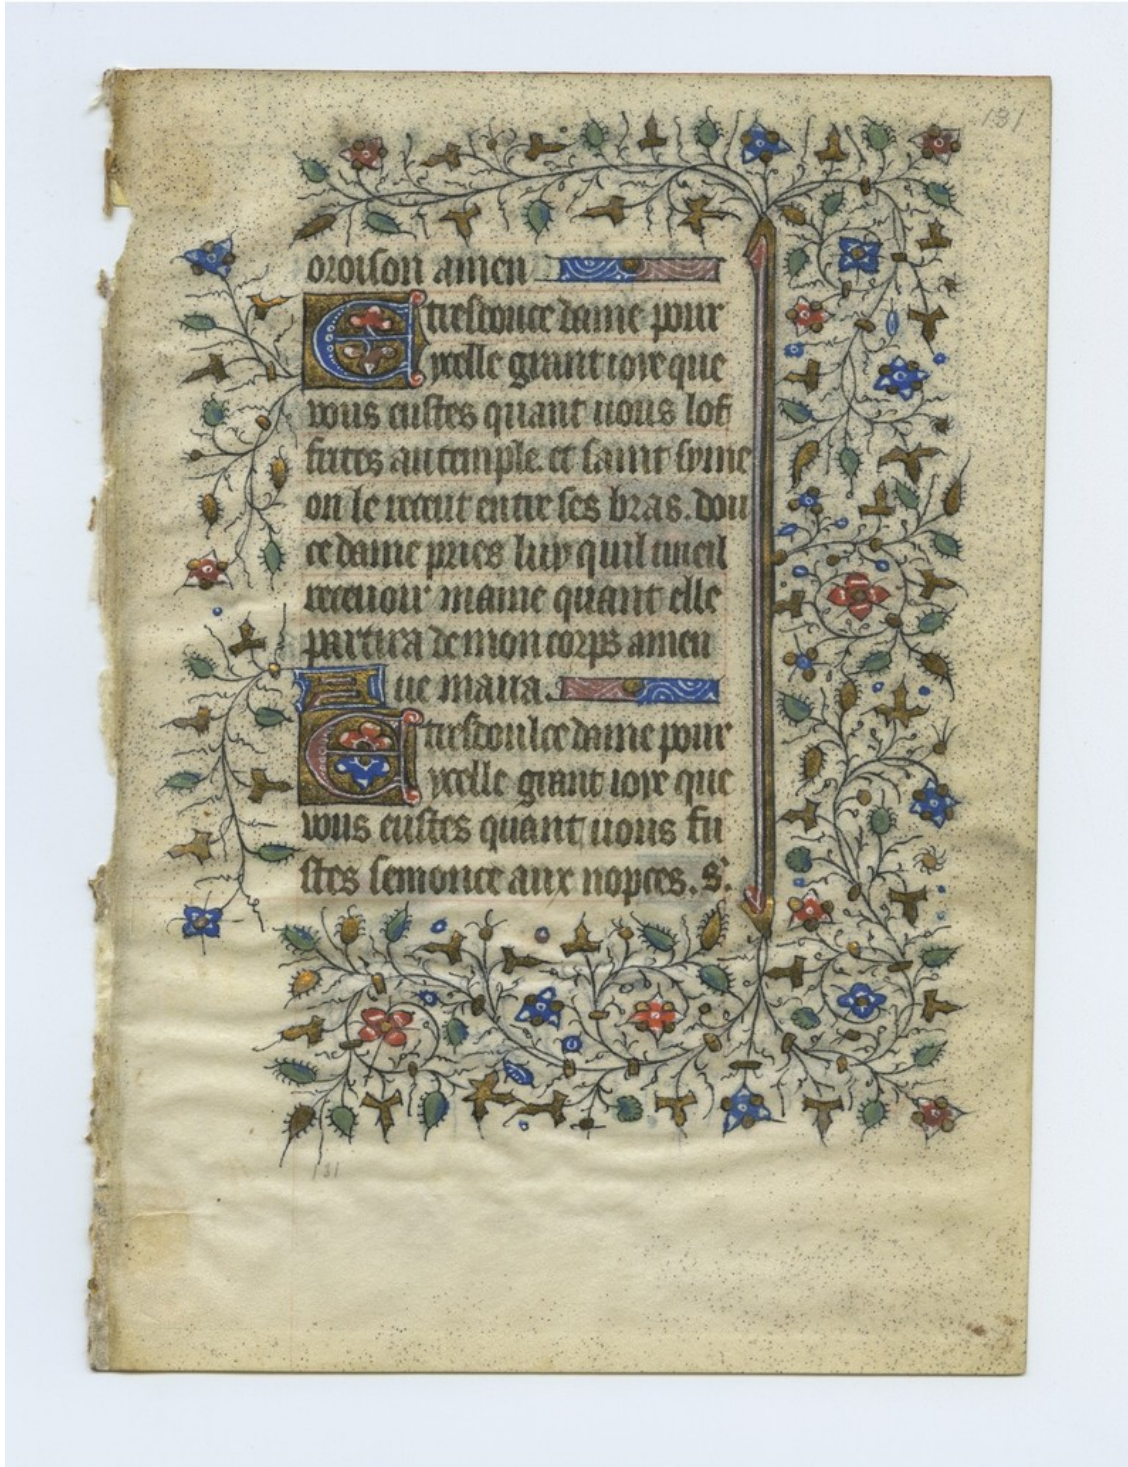 131
oroison amen
E tresdouce dame pour
ycelle grant ioye que
vous eustes quant uous lof
frites au temple. et saint syme
on le receut entre ses bras. dou
ce dame pries luy quil uueil
receuoir mame quant elle
partira de mon corps amen
Aue maria.
E tresdoulce dame pour
ycelle grant ioye que
vous eustes quant uous fu
stes semonce aux nopces. s.
131